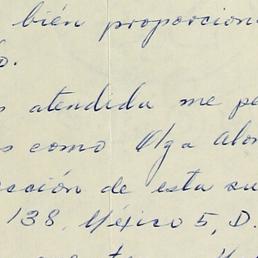 bién proporcion
o.
s atendida me pe
s como Olga Alon
ección de esta su
138, México 5, D.